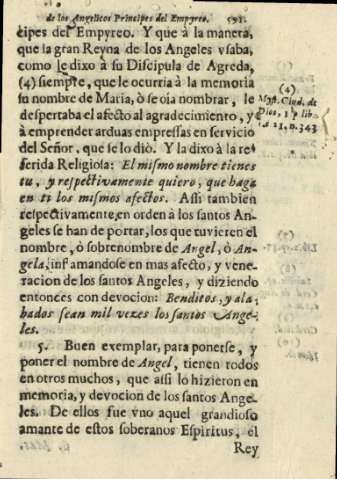 de los Angelicos Principes del Empyreo. 591.
cipes del Empyreo. Y que à la manera,
que la gran Reyna de los Angeles vsaba,
como le dixo à su Discipula de Agreda,
(4) siempre, que le ocurria à la memoria
su nombre de Maria, ò se oia nombrar, le
despertaba el afecto al agradecimiento, y
à emprender arduas empressas en servicio
del Señor, que se lo diò. Y la dixo à la re-
ferida Religiosa: El mismo nombre tienes
tu, y respectivamente quiero, que haga
en ti los mismos afectos. Assi tambien
respectivamente, en orden à los santos An-
geles se han de portar, los que tuvieren el
nombre, ò sobrenombre de Angel, ò An-
gela, inflamandose en mas afecto, y vene-
racion de los santos Angeles, y diziendo
entonces con devocion: Benditos, y ala-
bados sean mil vezes los santos Ange-
les.
5. Buen exemplar, para ponerse, y
poner el nombre de Angel, tienen todos
en otros muchos, que assi lo hizieron en
memoria, y devocion de los santos Ange-
les. De ellos fue vno aquel grandioso
amante de estos soberanos Espiritus, el
Rey
(4)
Myst. Ciud. de
Dios, 1. p. lib.
1. c. 21, n. 343